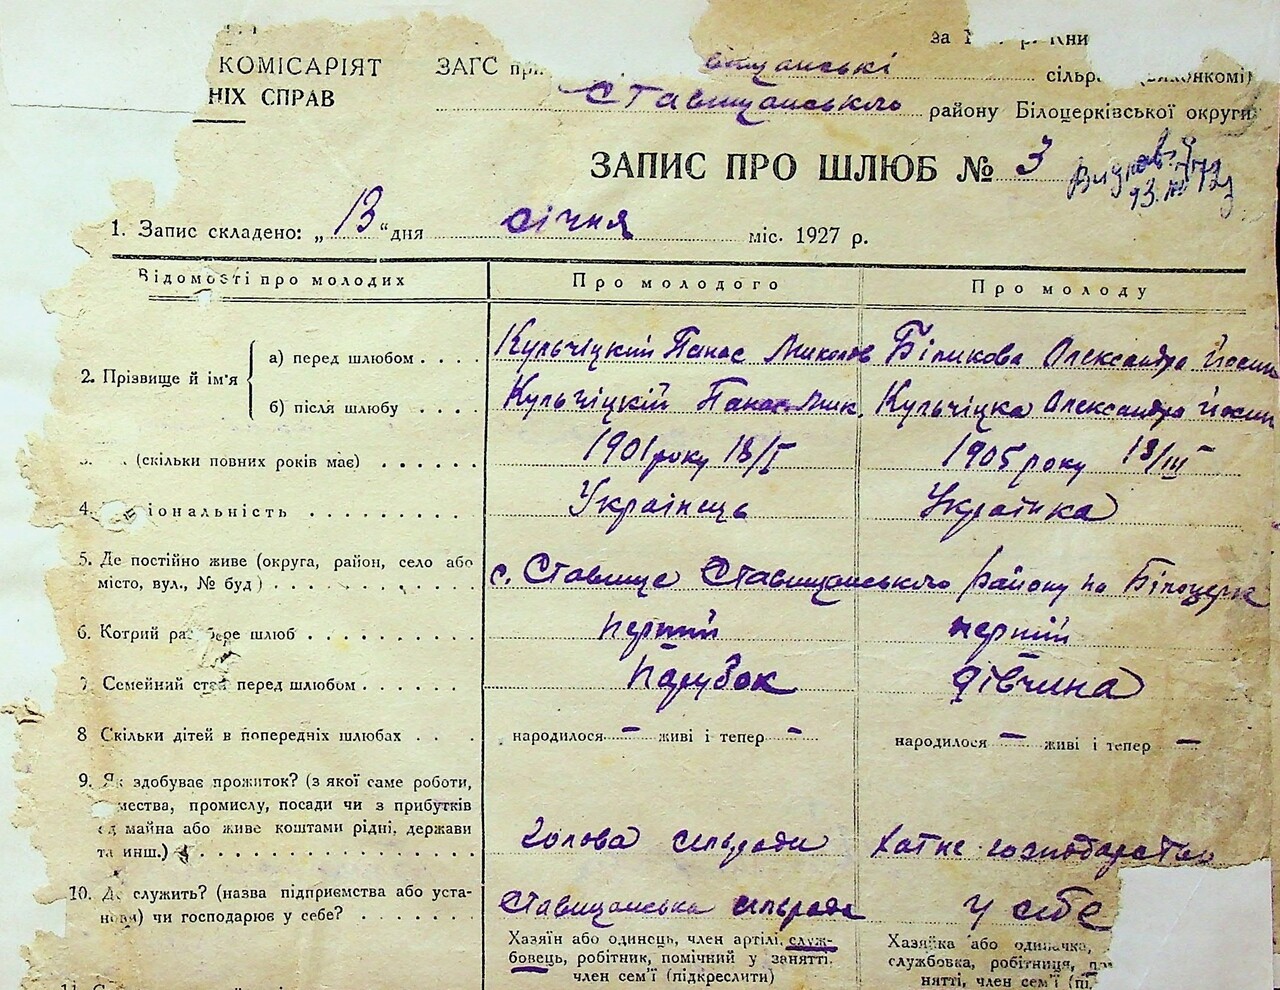 КОМІСАРІЯТ ЗАГС при
сільр
НІХ СПРАВ Ставищанського району Білоцерківської округи
ЗАПИС ПРО ШЛЮБ № 3
1. Запис складено: „13“ дня січня міс. 1927 р.
Відомості про молодих Про молодого Про молоду
2. Прізвище й ім'я
а) перед шлюбом . . . . Кульчіцкий Панас Миколов Біликова Олександра Йосип
б) після шлюбу . . . . Кульчіцкій Панас Мик. Кульчіцка Олександра Йосип
(скільки повних років має) . . . . . . 1901 року 18/I 1905 року 18/III
4. іональність . . . . . . . . . Українець Українка
5. Де постійно живе (округа, район, село або
місто, вул., № буд) . . . . . . . . . . с. Ставище Ставищанського району на Білоцерк
6. Котрий раз бере шлюб . . . . . . . . . перший перший
7 Семейний стан перед шлюбом . . . . . . Парубок дівчина
8 Скільки дітей в попередніх шлюбах . . . народилося — живі і тепер — народилося — живі і тепер —
9. Як здобуває прожиток? (з якої саме роботи,
мества, промислу, посади чи з прибутків
від майна або живе коштами рідні, держави
та инш.) . . . . . . . . . . . . . голова сельради Хатне господарство
10. Де служить? (назва підприємства або уста-
нови) чи господарює у себе? . . . . . . . Ставищанська сельрада у себе
Хазяїн або одинець, член артілі, служ- Хазяйка або одиначка,
бовець, робітник, помічний у занятті, службовка, робітниця,
член сем'ї (підкреслити) нятті, член сем'ї (пі
11.